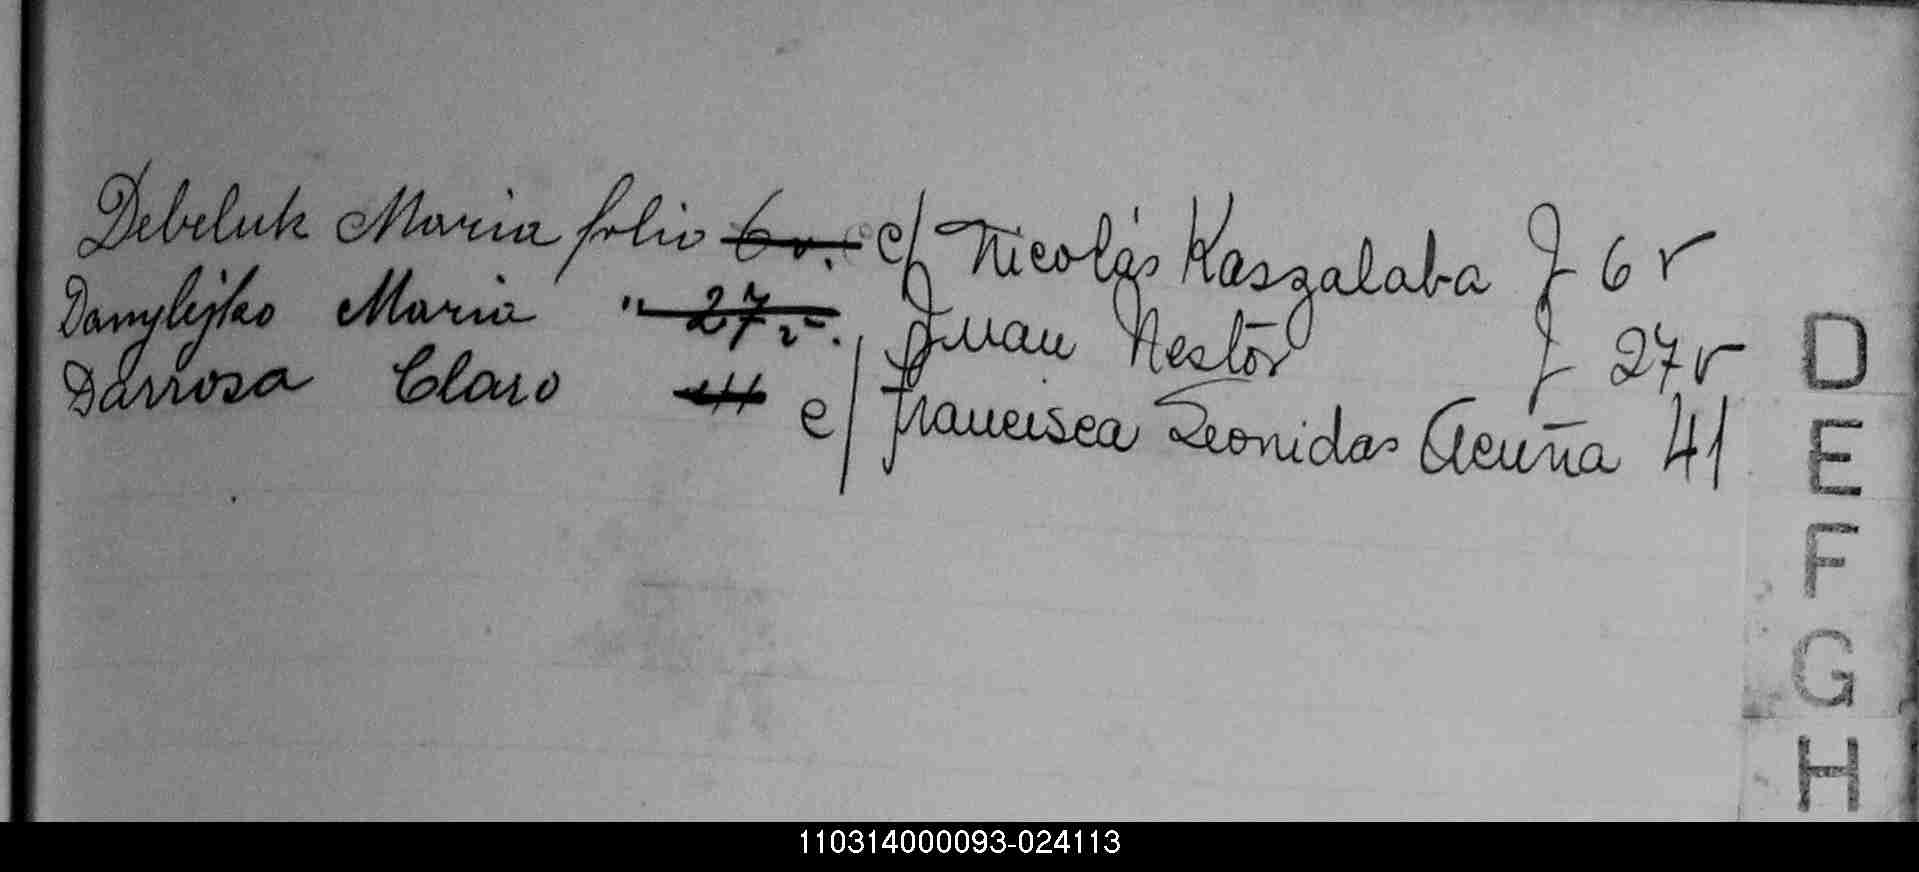 Debeluk Maria folio 6v. c/ Nicolás Kaszalaba f 6 v
Danylejko Maria " 27 v. / Juan Nestor f 27 v
Darrosa Claro c/ Francisca Leonidas Acuña 41
D
E
F
G
H
110314000093-024113